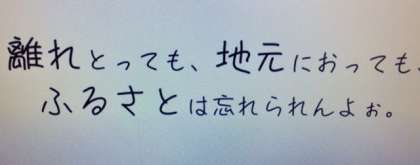 離れとっても、地元におっても、
ふるさとは忘れられんよぉ。